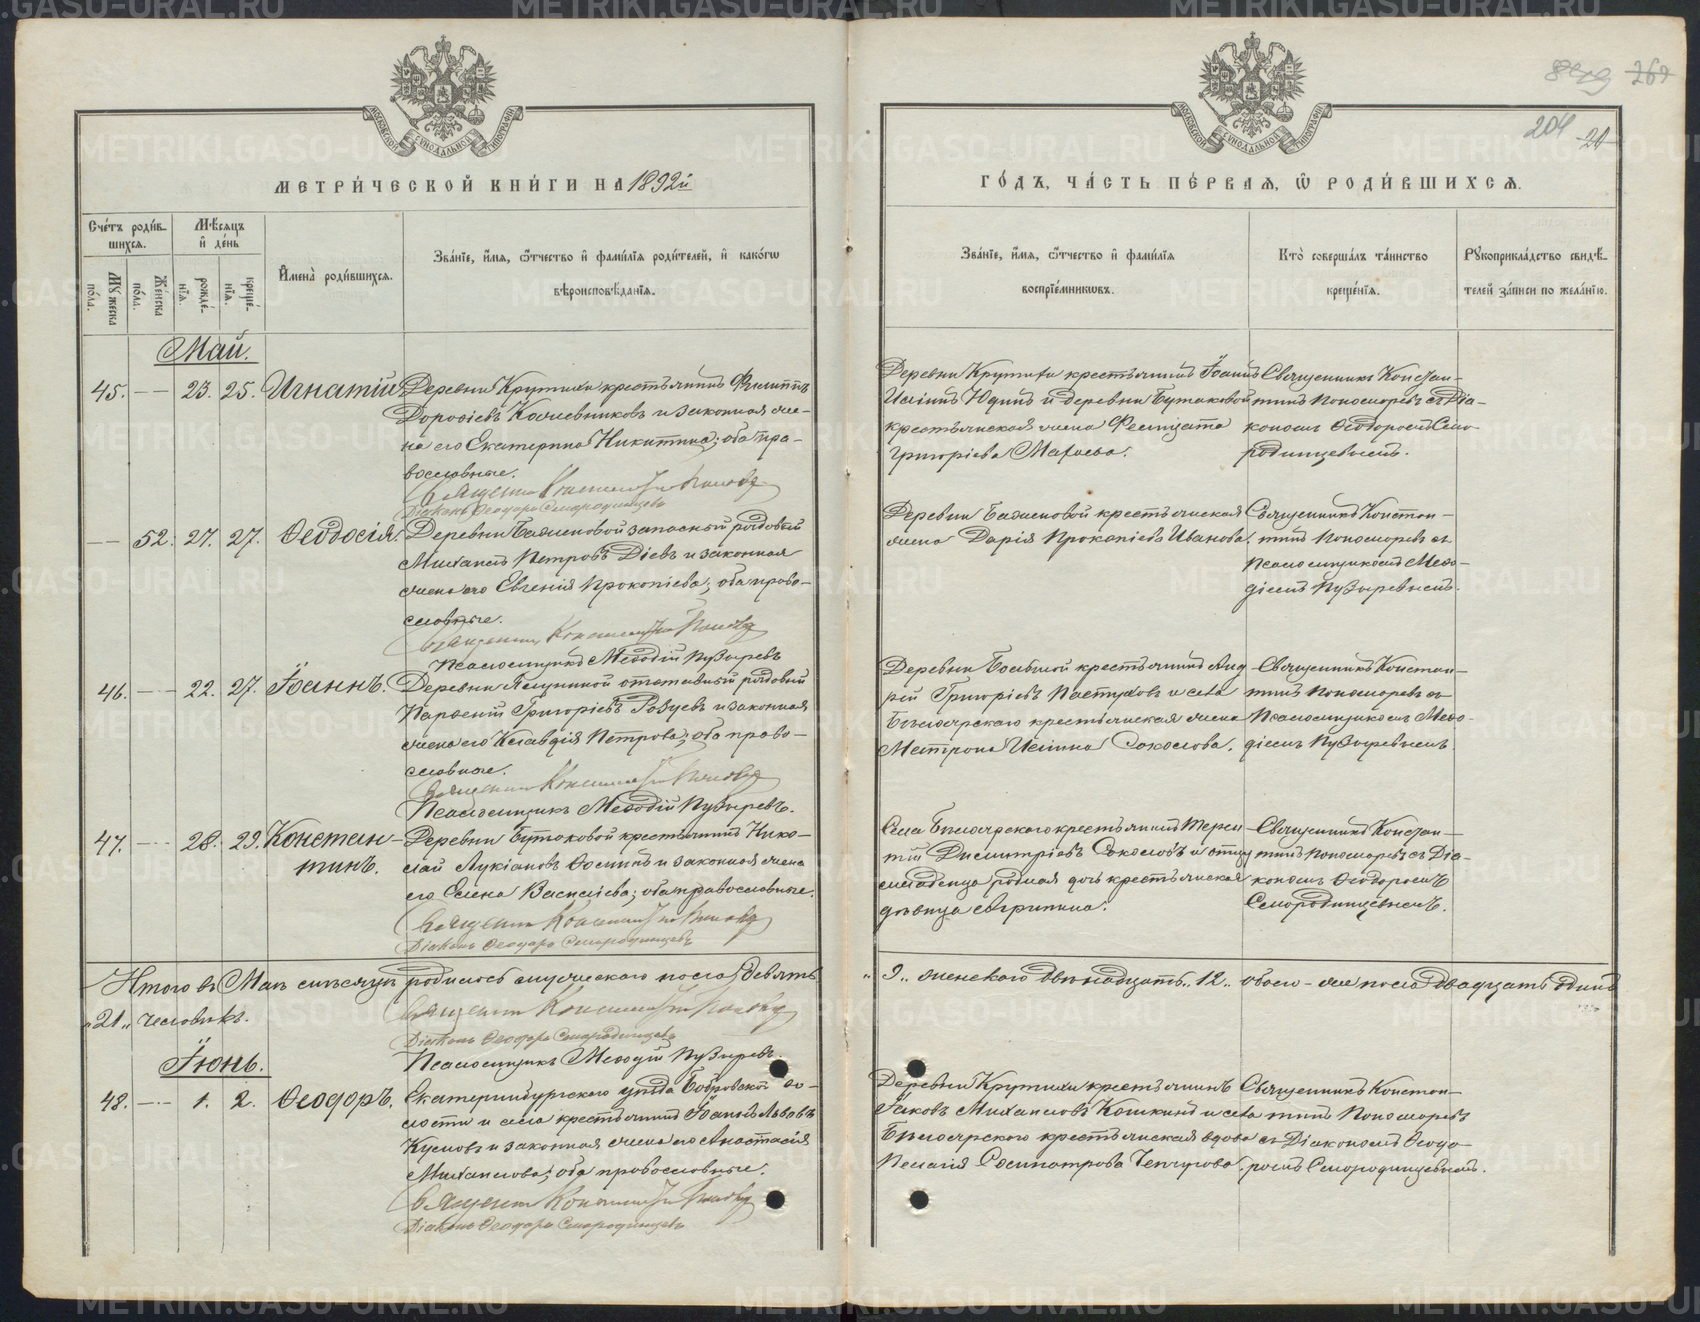 МЕТРИ́ЧЕСКОЙ КНИ́ГИ НА 1892й
ГО́ДЪ, ЧА́СТЬ ПЕ́РВАЯ, Ѽ РОДИ́ВШИХСЯ.
204
Сче́тъ роди́в-
шихся.
Мѣсяцъ
и де́нь
Мꙋжеска
по́ла.
Же́нска
по́ла.
рожде́-
нїя.
креще́-
нїя.
Имена̀ роди́вшихся.
Зва́нїе, и́мя, о́тчество и фами́лїя роди́телей, и како́гѡ
вѣроисповѣ́данїя.
Зва́нїе, и́мя, о́тчество и фами́лїя
воспрїе́мникѡвъ.
Кто̀ соверша́лъ та́инство
креще́нїя.
Рꙋкоприкла́дство свидѣ́-
телей за́писи по жела́нїю.
Май.
45. — — 23. 25. Игнатій
Деревни Крутихи крестьянинъ Филиппъ
Дороѳіевъ Кожевниковъ и законная же-
на его Екатерина Никитина; оба пра-
вославные.
Діаконъ Ѳеодоръ Смородинцевъ
Деревни Крутихи крестьянинъ Іоаннъ
Ильинъ Юдинъ и деревни Бутаковой
крестьянская жена Фелицата
Григоріева Махаева.
Священникъ Констан-
тинъ Пономаревъ съ Діа-
кономъ Ѳеодоромъ Смо-
родинцевымъ.
— — 52. 27. 27. Ѳеодосія
Деревни Баженовой запасный рядовый
Михаилъ Петровъ Діевъ и законная
жена его Евгенія Прокопіева; оба право-
славные.
Псаломщикъ Меѳодій Пузыревъ
Деревни Баженовой крестьянская
жена Дарія Прокопіева Иванова.
Священникъ Констан-
тинъ Пономаревъ съ
псаломщикомъ Меѳо-
діемъ Пузыревымъ.
46. — — 22. 27. Іоаннъ.
отставный рядовый
Парѳеній Григоріевъ и законная
жена его Клавдія Петрова; оба право-
славные.
Псаломщикъ Меѳодій Пузыревъ.
крестьянинъ Анд-
рей Григоріевъ Пастуховъ и села
Бѣлоярскаго крестьянская жена
Матрона Ильина Соколова.
Священникъ Констан-
тинъ Пономаревъ съ
Псаломщикомъ Меѳо-
діемъ Пузыревымъ
47. — — 28. 29. Констан-
тинъ.
Деревни Бутаковой крестьянинъ Нико-
лай Лукіановъ и законная жена
его Елена Васильева; оба православные.
Діаконъ Ѳеодоръ Смородинцевъ
Села Бѣлоярскаго крестьянинъ Терен-
тій Димитріевъ Соколовъ и отцу
младенца родная дочь крестьянская
дѣвица Агрипина.
Священникъ Констан-
тинъ Пономаревъ съ Діа-
кономъ Ѳеодоромъ
Смородинцевымъ.
Итого въ Маѣ мѣсяцѣ родилось мужескаго пола девять
„ 9 „ женскаго двѣнадцать „ 12 „ обоего - же пола двадцать одинъ
„ 21 „ человѣкъ.
Діаконъ Ѳеодоръ Смородинцевъ
Псаломщикъ Меѳодій Пузыревъ.
Іюнь.
48. — — 1. 2. Ѳеодоръ.
Екатеринбургскаго уѣзда Бобровской во-
лости и села крестьянинъ Іоаннъ Львовъ
и законная жена его Анастасія
Михаилова; оба православные.
Діаконъ Ѳеодоръ Смородинцевъ
Деревни Крутихи крестьянинъ
Іаковъ Михаиловъ Кошкинъ и села
Бѣлоярскаго крестьянская вдова
Пелагія Сосипатрова Чепчугова.
Священникъ Констан-
тинъ Пономаревъ
съ Діакономъ Ѳеодо-
ромъ Смородинцевымъ.
METRIKI.GASO-URAL.RU